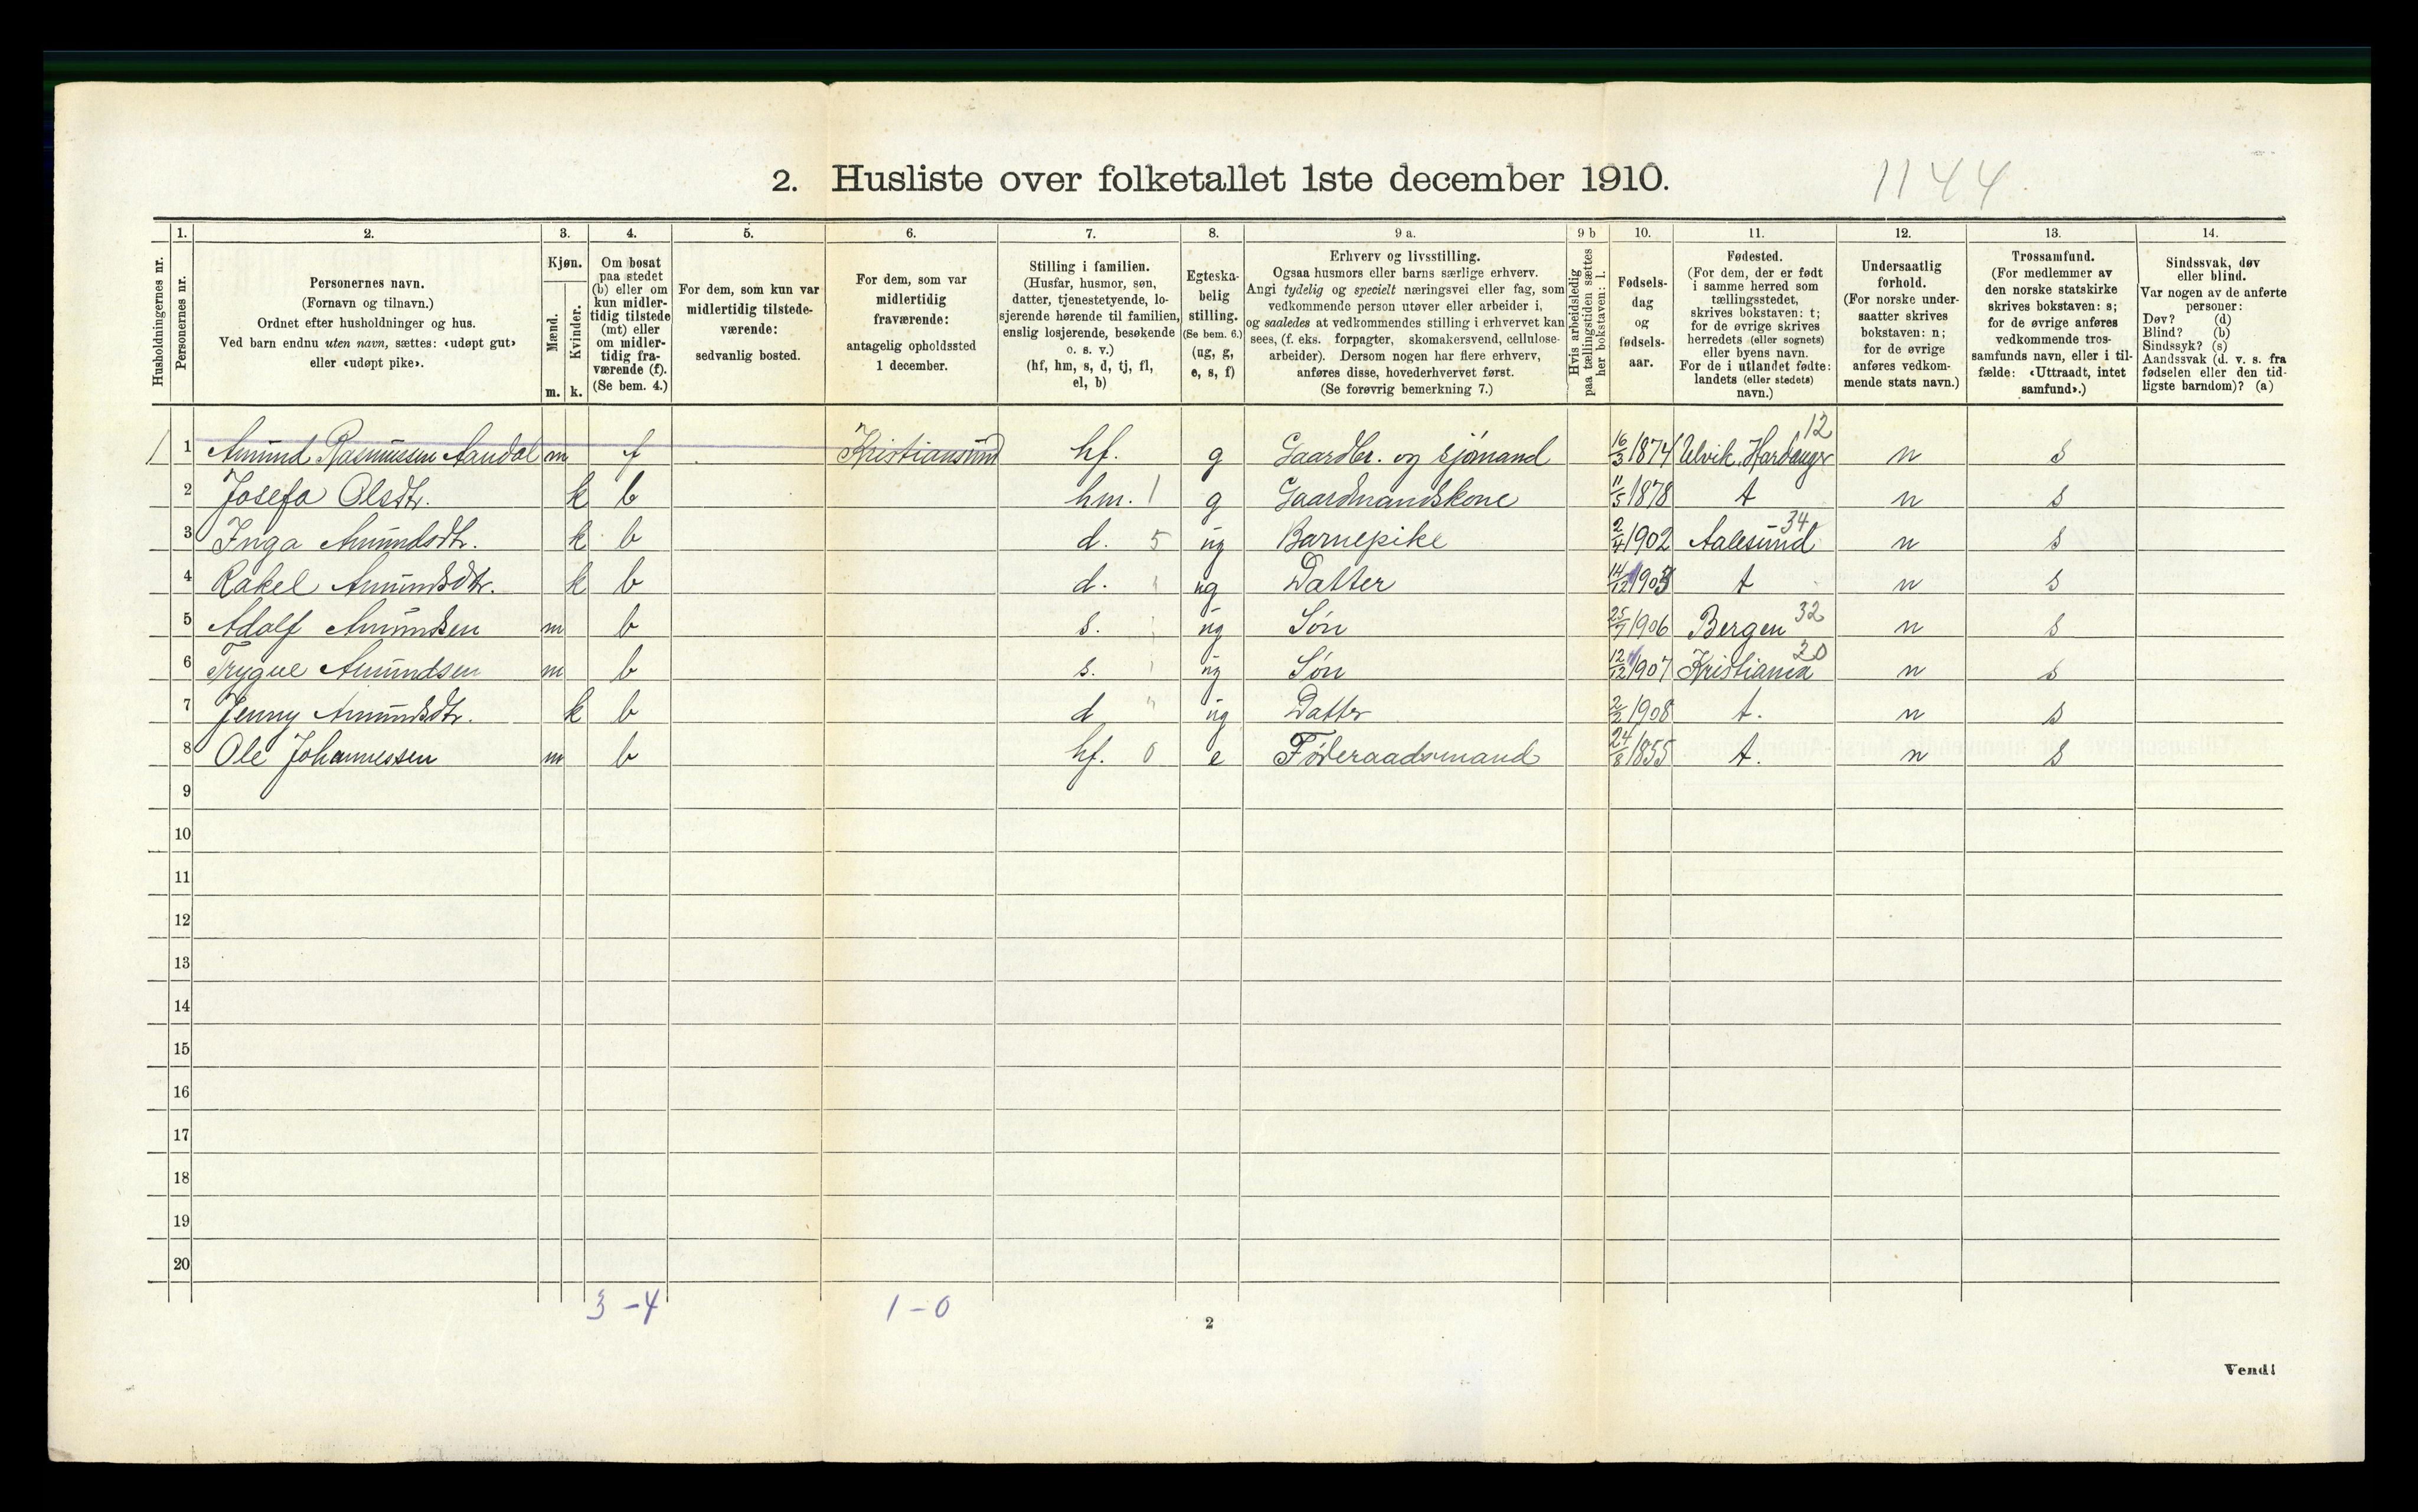 2. Husliste over folketallet 1ste december 1910.
1144
Husholdningernes nr.
1.
Personernes nr.
2.
Personernes navn.
(Fornavn og tilnavn.)
Ordnet efter husholdninger og hus.
Ved barn endnu uten navn, sættes: «udøpt gut»
eller «udøpt pike».
3.
Kjøn.
Mænd.
Kvinder.
m. k.
4.
Om bosat
paa stedet
(b) eller om
kun midler-
tidig tilstede
(mt) eller
om midler-
tidig fra-
værende (f).
(Se bem. 4.)
5.
For dem, som kun var
midlertidig tilstede-
værende:
sedvanlig bosted.
6.
For dem, som var
midlertidig
fraværende:
antagelig opholdssted
1 december.
7.
Stilling i familien.
(Husfar, husmor, søn,
datter, tjenestetyende, lo-
sjerende hørende til familien,
enslig losjerende, besøkende
o. s. v.)
(hf, hm, s, d, tj, fl,
el, b)
8.
Egteska-
belig
stilling.
(Se bem. 6.)
(ug, g,
e, s, f)
9 a.
Erhverv og livsstilling.
Ogsaa husmors eller barns særlige erhverv.
Angi tydelig og specielt næringsvei eller fag, som
vedkommende person utøver eller arbeider i,
og saaledes at vedkommendes stilling i erhvervet kan
sees, (f. eks. forpagter, skomakersvend, cellulose-
arbeider). Dersom nogen har flere erhverv,
anføres disse, hovederhvervet først.
(Se forøvrig bemerkning 7.)
9 b
Hvis arbeidsledig
paa tællingstiden sættes
her bokstaven: l.
10.
Fødsels-
dag
og
fødsels-
aar.
11.
Fødested.
(For dem, der er født
i samme herred som
tællingsstedet,
skrives bokstaven: t;
for de øvrige skrives
herredets (eller sognets)
eller byens navn.
For de i utlandet fødte:
landets (eller stedets)
navn.)
12.
Undersaatlig
forhold.
(For norske under-
saatter skrives
bokstaven: n;
for de øvrige
anføres vedkom-
mende stats navn.)
13.
Trossamfund.
(For medlemmer av
den norske statskirke
skrives bokstaven: s;
for de øvrige anføres
vedkommende tros-
samfunds navn, eller i til-
fælde: «Uttraadt, intet
samfund».)
14.
Sindssvak, døv
eller blind.
Var nogen av de anførte
personer:
Døv? (d)
Blind? (b)
Sindssyk? (s)
Aandssvak (d. v. s. fra
fødselen eller den tid-
ligste barndom)? (a)
1 1 Amund Rasmussen Aandal m f Kristiansund hf. g Gaardbr. og sjømand 16/3 1874 Ulvik, Hardanger 12 n s
2 Josefa Olsdtr. k b hm. 1 g Gaardmandskone 11/5 1878 t n s
3 Inga Amundsdtr. k b d. 5 ug Barnepike 2/4 1902 Aalesund 34 n s
4 Rakel Amundsdtr. k b d. " ug Datter 14/12 1903 t n s
5 Adolf Amundsen m b s. " ug Søn 25/7 1906 Bergen 32 n s
6 Trygve Amundsen m b s. " ug Søn 12/12 1907 Kristiania 20 n s
7 Jenny Amundsdtr. k b d " ug Datter 2/2 1908 t. n s
8 Ole Johannessen m b hf. 0 e Føderaadsmand 24/8 1855 t. n s
9
10
11
12
13
14
15
16
17
18
19
20
3 - 4 1 - 0
2
Vend!